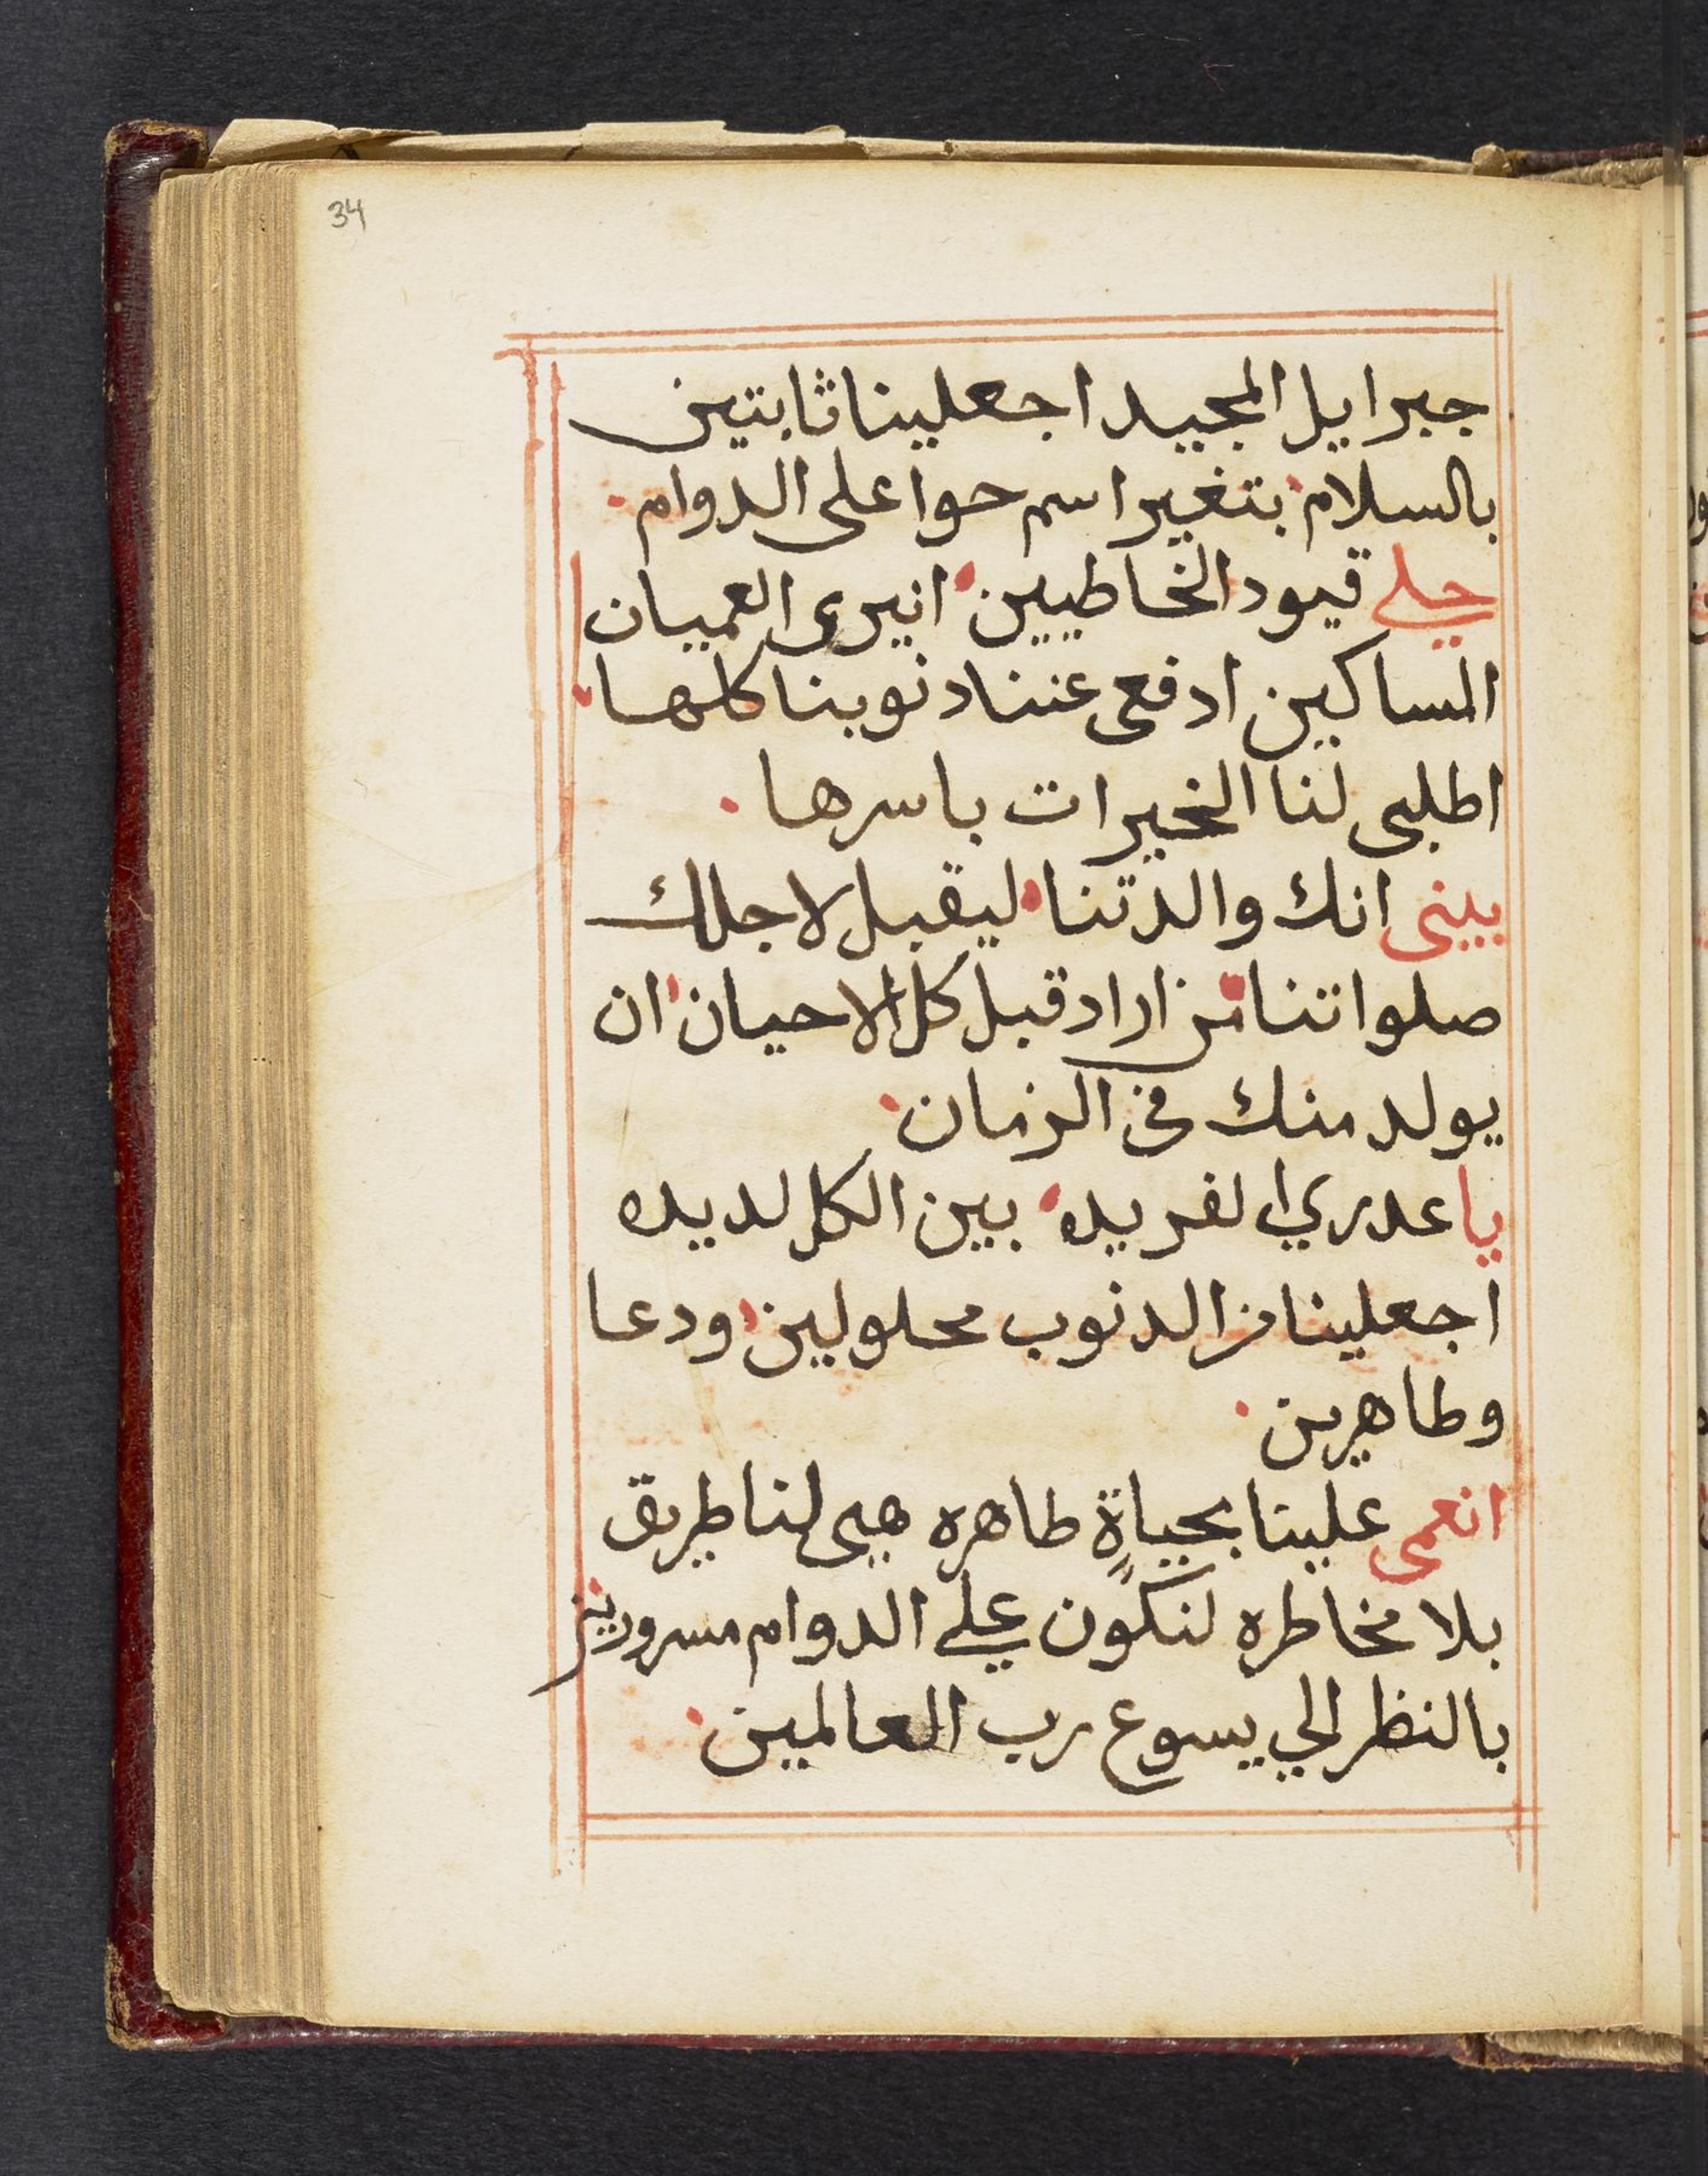 34
جبرايل المجيد اجعلينا ثابتين
بالسلام بتغير اسم حوا على الدوام
حلي قيود الخاطيين انيرى العميان
المساكين ادفعى عننا دنوبنا كلها
اطلبى لنا الخيرات باسرها
بينى انك والدتنا ليقبل لاجلك
صلواتنا من اراد قبل كل الاحيان ان
يولد منك فى الزمان
يا عدري الفريده بين الكل لديده
اجعلينا من الدنوب محلولين ودعا
وطاهرين
انعمى علينا بحياةٍ طاهره هيى لنا طريق
بلا مخاطره لنكون علي الدوام مسرورين
بالنظر الي يسوع رب العالمين